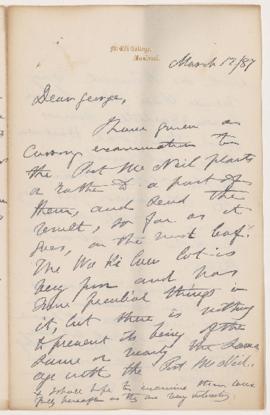 McGill College,
Montreal.
March 17/87
Dear George,
I have given a
cursory examination to
the Port McNeil plants
or rather to a part of
them, and send the
result, so far as it
goes, on the next leaf.
The lot is
very poor and has
some peculiar things in
it, but there is nothing
to prevent its being of the
same or nearly the same
age with the Port McNeil.
I shall hope to examine them more
fully hereafter as they are very interesting